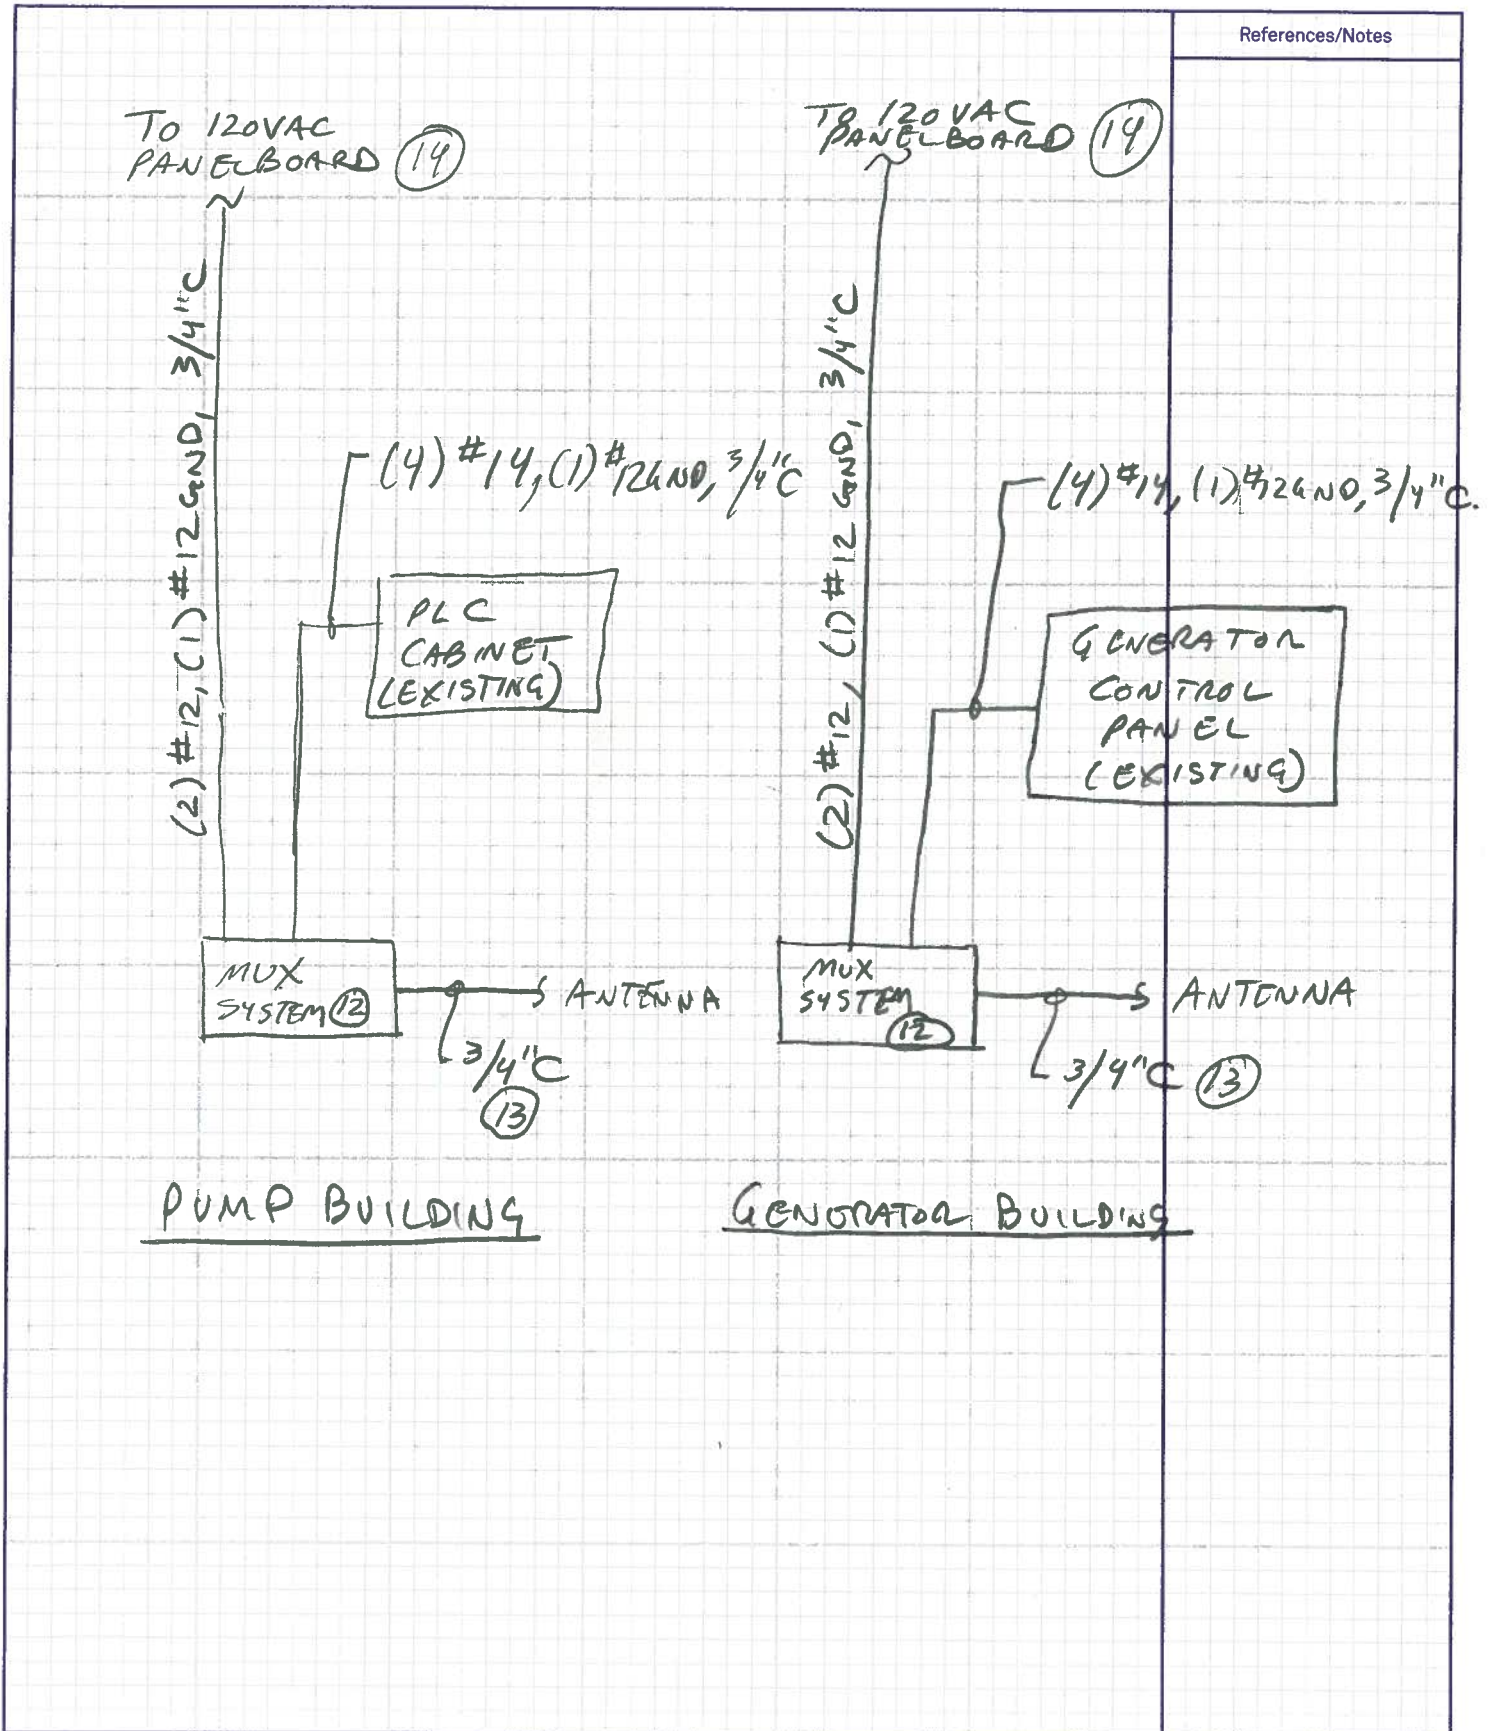 References/Notes
TO 120VAC
PANELBOARD 14
(2) #12, (1) #12 GND, 3/4"C
(4) #14, (1) #12 GND, 3/4"C
PLC
CABINET
(EXISTING)
MUX
SYSTEM 12
ANTENNA
3/4"C
13
PUMP BUILDING
TO 120 VAC
PANELBOARD 14
(2) #12, (1) #12 GND, 3/4"C
(4) #14, (1) #12 GND, 3/4"C.
GENERATOR
CONTROL
PANEL
(EXISTING)
MUX
SYSTEM
12
ANTENNA
3/4"C 13
GENERATOR BUILDING